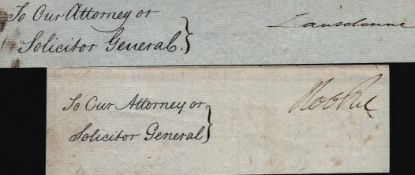 To Our Attorney or
Solicitor General.}
Lansdowne
To Our Attorney or
Solicitor General}